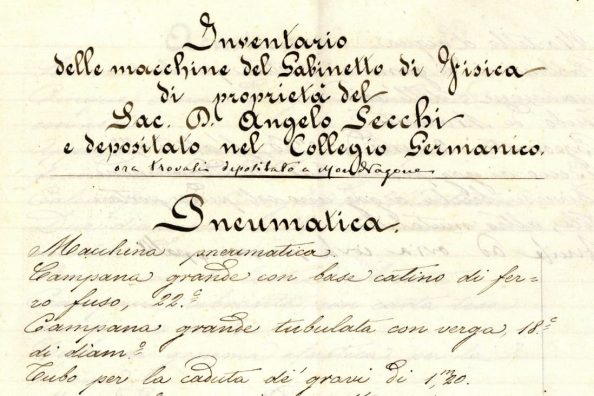 Inventario
delle macchine del Gabinetto di Fisica
di proprietà del
Sac. D. Angelo Secchi
e depositato nel Collegio Germanico.
ora trovasi depositato a Mondragone
Pneumatica.
Macchina pneumatica.
Campana grande con base catino di fer-
ro fuso, 22.c
Campana grande tubulata con verga, 18.c
di diam.o
Tubo per la caduta de' gravi di 1,m20.